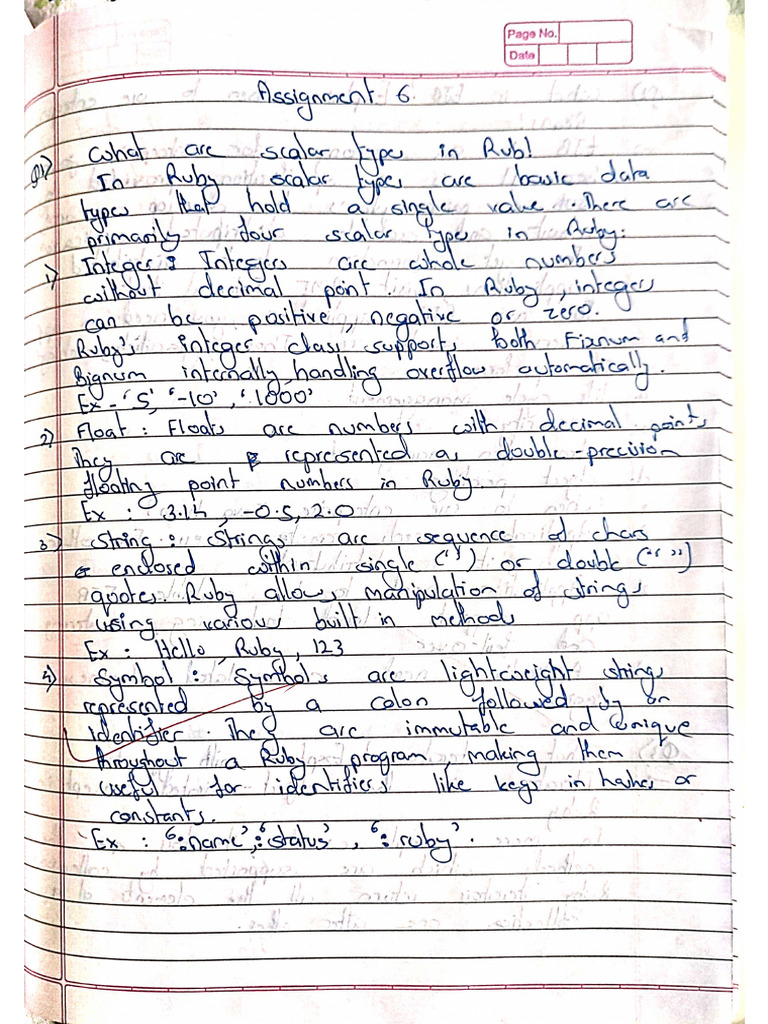 Page No.
Date
Assignment 6.
Q1) What are scalar type in Rub!
In Ruby scalar types are basic data
types that hold a single value. There are
primarily four scalar type in Ruby.
1) Integer : Integers are whole numbers
without decimal point. In Ruby, integers
can be positive, negative or zero.
Ruby's integer class supports both Fixnum and
Bignum internally, handling overflow automatically.
Ex - '5', '-10', '1000'
2) Float : Floats are numbers with decimal points,
They are represented as double-precision
floating point numbers in Ruby.
Ex : 3.14, -0.5, 2.0
3) String : Strings are sequence of chars
enclosed within single (' ') or double (" ")
quotes. Ruby allows manipulation of strings
using various built in methods
Ex : Hello, Ruby, 123
4) Symbol : Symbols are lightweight strings
represented by a colon followed by an
identifier. They are immutable and unique
throughout a Ruby program, making them
useful for identifiers like keys in hashes or
constants.
Ex : ':name', ':status', ':ruby'.